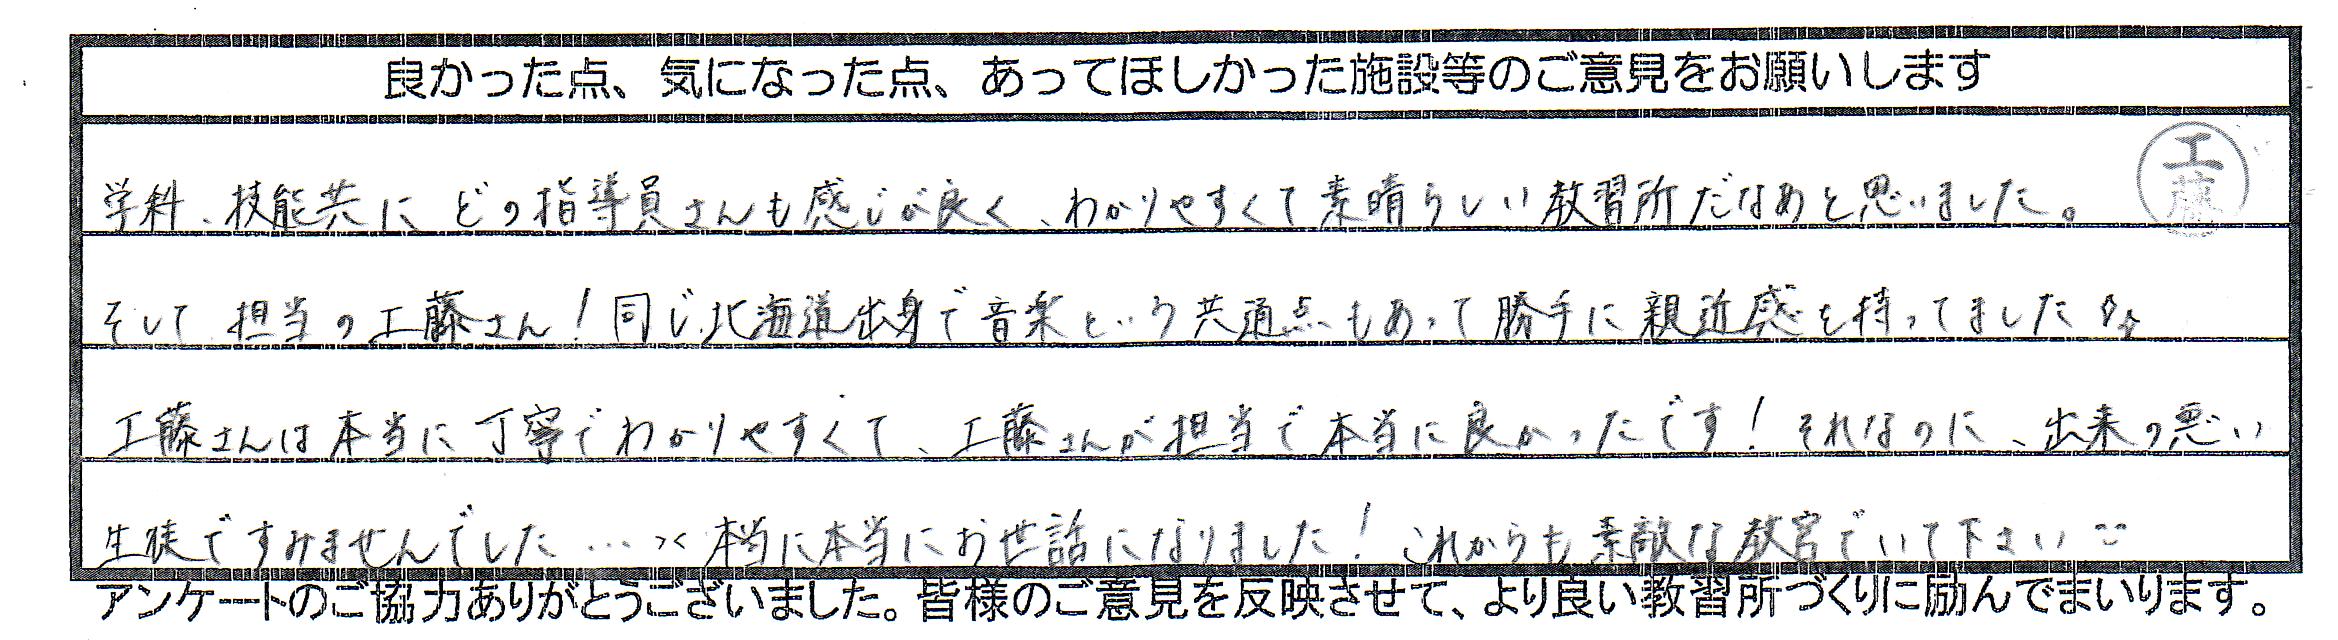 良かった点、気になった点、あってほしかった施設等のご意見をお願いします
工藤
学科、技能共にどの指導員さんも感じが良く、わかりやすくて素晴らしい教習所だなあと思いました。
そして担当の工藤さん!同じ北海道出身で音楽という共通点もあって勝手に親近感を持ってました
工藤さんは本当に丁寧でわかりやすくて、工藤さんが担当で本当に良かったです!それなのに、出来の悪い
生徒ですみませんでした…>< 本当に本当にお世話になりました!これからも素敵な教官でいて下さい
アンケートのご協力ありがとうございました。皆様のご意見を反映させて、より良い教習所づくりに励んでまいります。